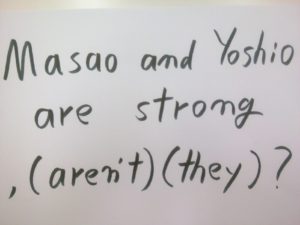 Masao and Yoshio
are strong
, (aren't) (they)?